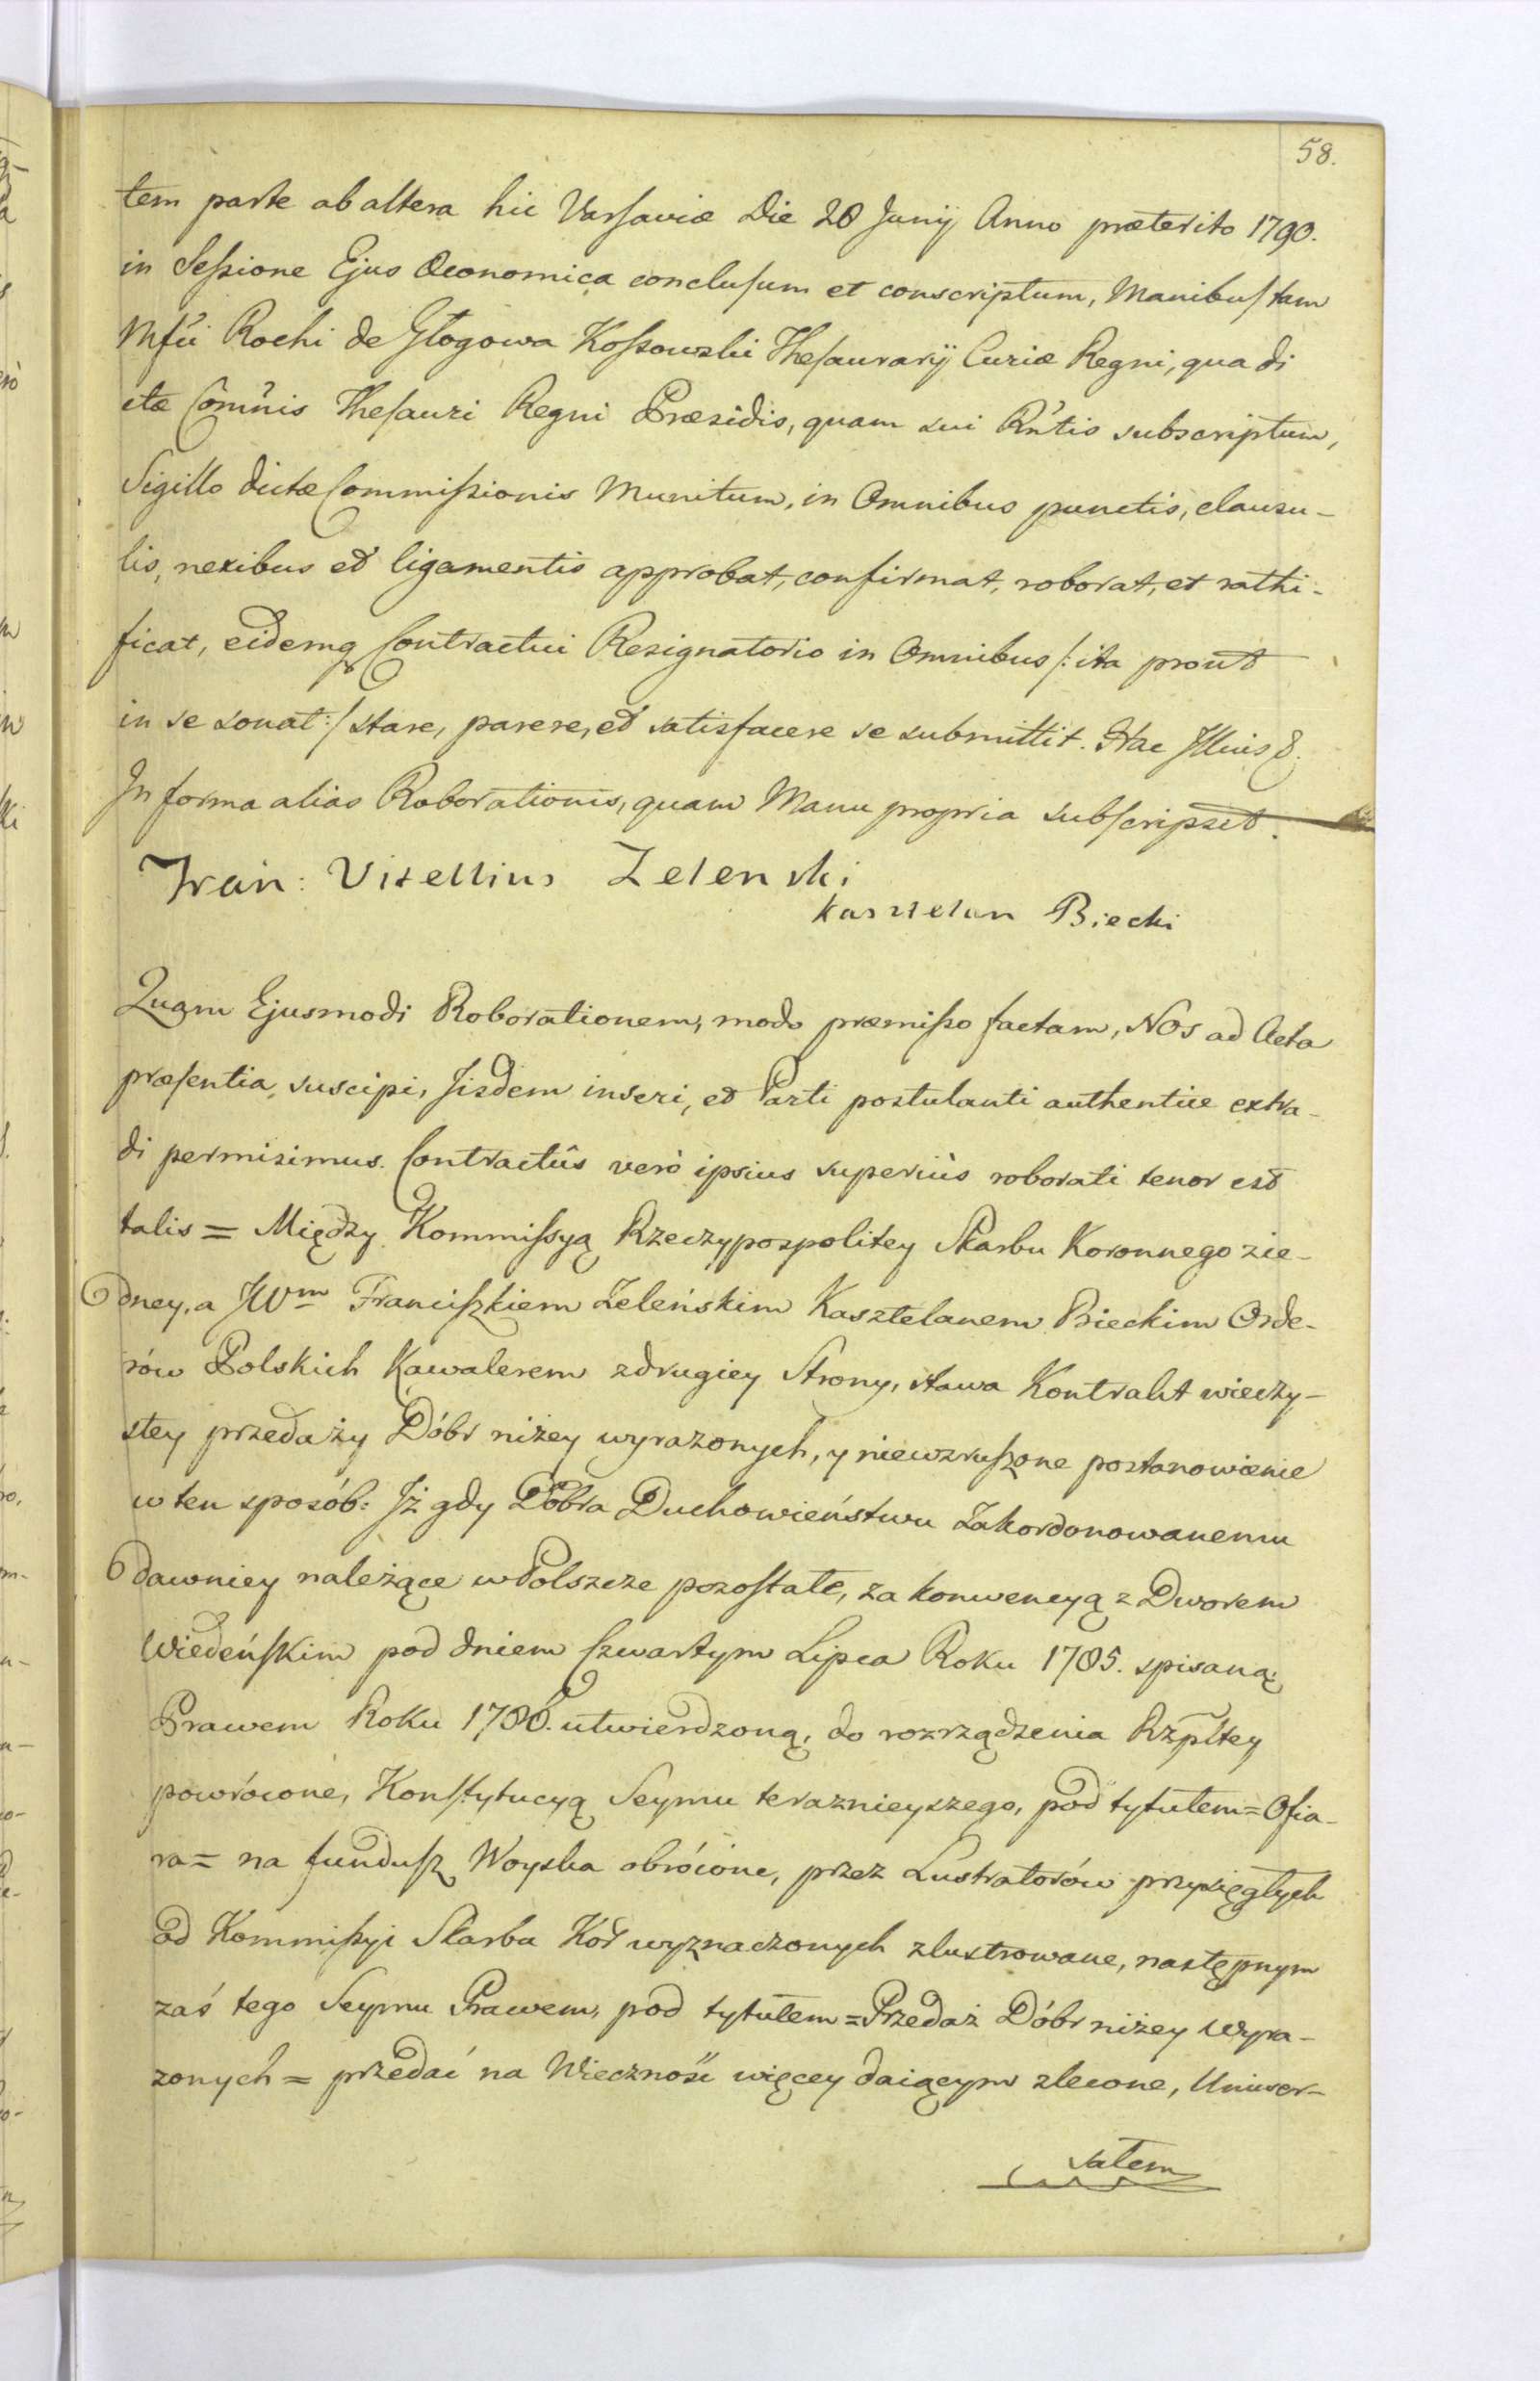 58.
tem parte ab altera hic Varsaviæ Die 28 Junij Anno præterito 1790.
in Seſsione Ejus Œconomica conclusum et conscriptum, Manibus tam
Mfci Rochi de Głogowa Koſsowski Theſaurarij Curiæ Regni, qua di
ctæ Comñis Theſauri Regni Præsidis, quam sui Rñtis subscriptum,
Sigillo dictæ Commiſsionis Munitum, in Omnibus punctis, clausu-
lis, nexibus et ligamentis approbat, confirmat, roborat, et rathi-
ficat, eidemq Contractui Resignatorio in Omnibus /: ita prout
in se sonat :/ stare, parere, et satisfacere se submittit. Hac
In forma alias Roborationis, quam Manu propria subscripsit.
Fran: Vitellius Zelenski
Kasztelan Biecki
Quam Ejusmodi Roborationem, modo præmiſso factam, Nos ad Acta
præſentia, suscipi, Iisdem inseri, et Parti postulanti authentice extra-
di permisimus. Contractûs verò ipsius superiùs roborati tenor est
talis = Między Kommiſsyą Rzeczypospolitey Skarbu Koronnego z ie-
dney, a JWm Franciſzkiem Zeleńskim Kasztelanem Bieckim Orde-
rów Polskich Kawalerem z drugiey Strony, stawa Kontrakt wieczy-
stey przedaży Dóbr niżey wyrażonych, y niewzruſzone postanowienie
w ten sposób: Jż gdy Dobra Duchowieństwu Zakordonowanemu
dawniey należące w Polszcze pozoſtałe, za konwencyą z Dworem
Wiedeńſkim pod dniem Czwartym Lipca Roku 1785. spisaną
Prawem Roku 1786. utwierdzoną, do rozrządzenia Rzpltey
powrócone, Konſtytucyą Seymu teraznieyszego, pod tytułem = Ofia-
ra = na funduſz Woyska obrócone, przez Lustratorów przysięgłych
od Kommiſsyi Skarbu Kor wyznaczonych zlustrowane, następnym
zaś tego Seymu Prawem, pod tytułem = Przedaż Dóbr niżey wyra-
żonych = przedać na Wieczność więcey daiącym zlecone, Uniwer-
sałem